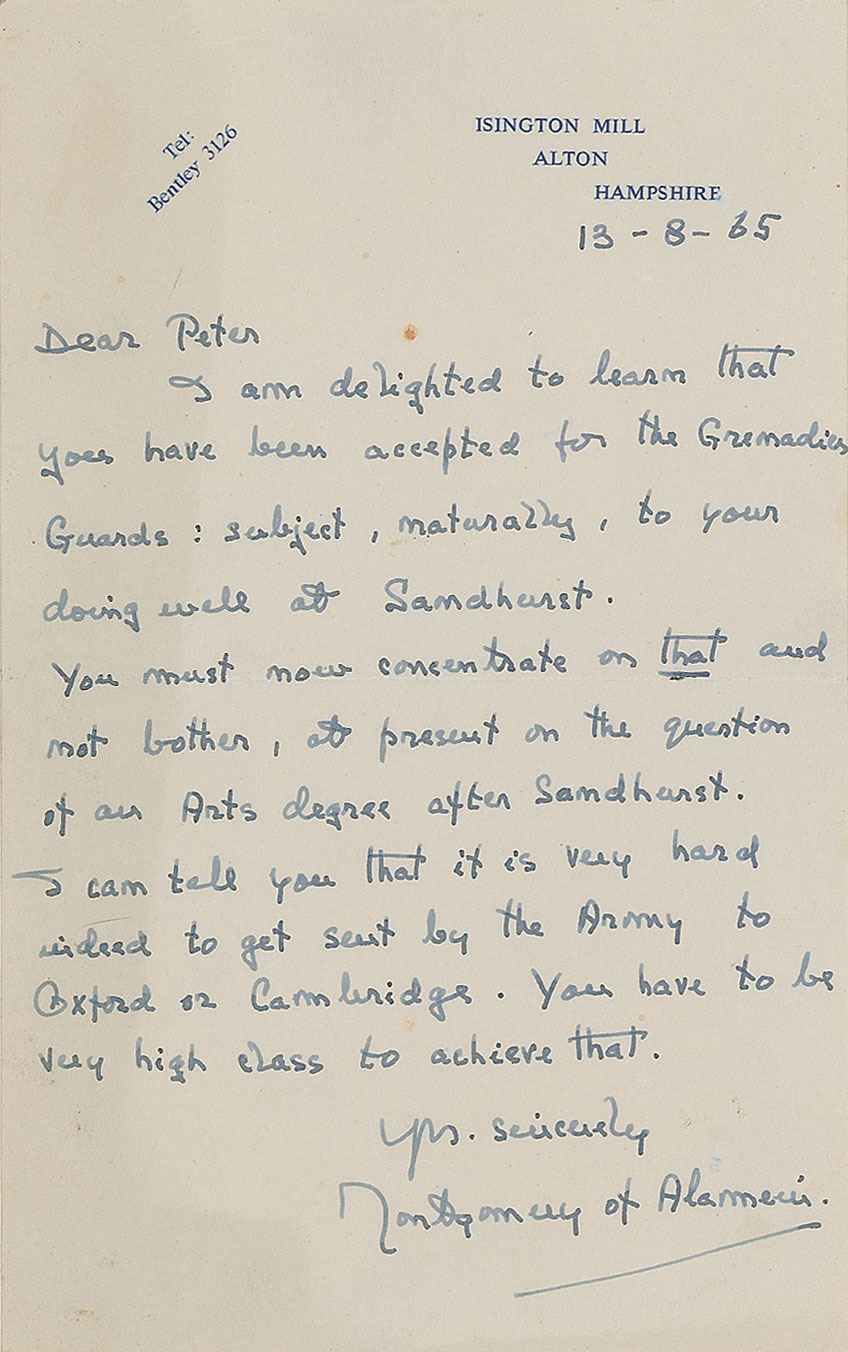 Tel:
Bentley 3126
ISINGTON MILL
ALTON
HAMPSHIRE
13 - 8 - 65
Dear Peter
I am delighted to learn that
you have been accepted for the Grenadier
Guards : subject , naturally , to your
doing well at Sandhurst .
You must now concentrate on that and
not bother , at present on the question
of an Arts degree after Sandhurst .
I can tell you that it is very hard
indeed to get sent by the Army to
Oxford or Cambridge . You have to be
very high class to achieve that .
Yrs. sincerely
Montgomery of Alamein .